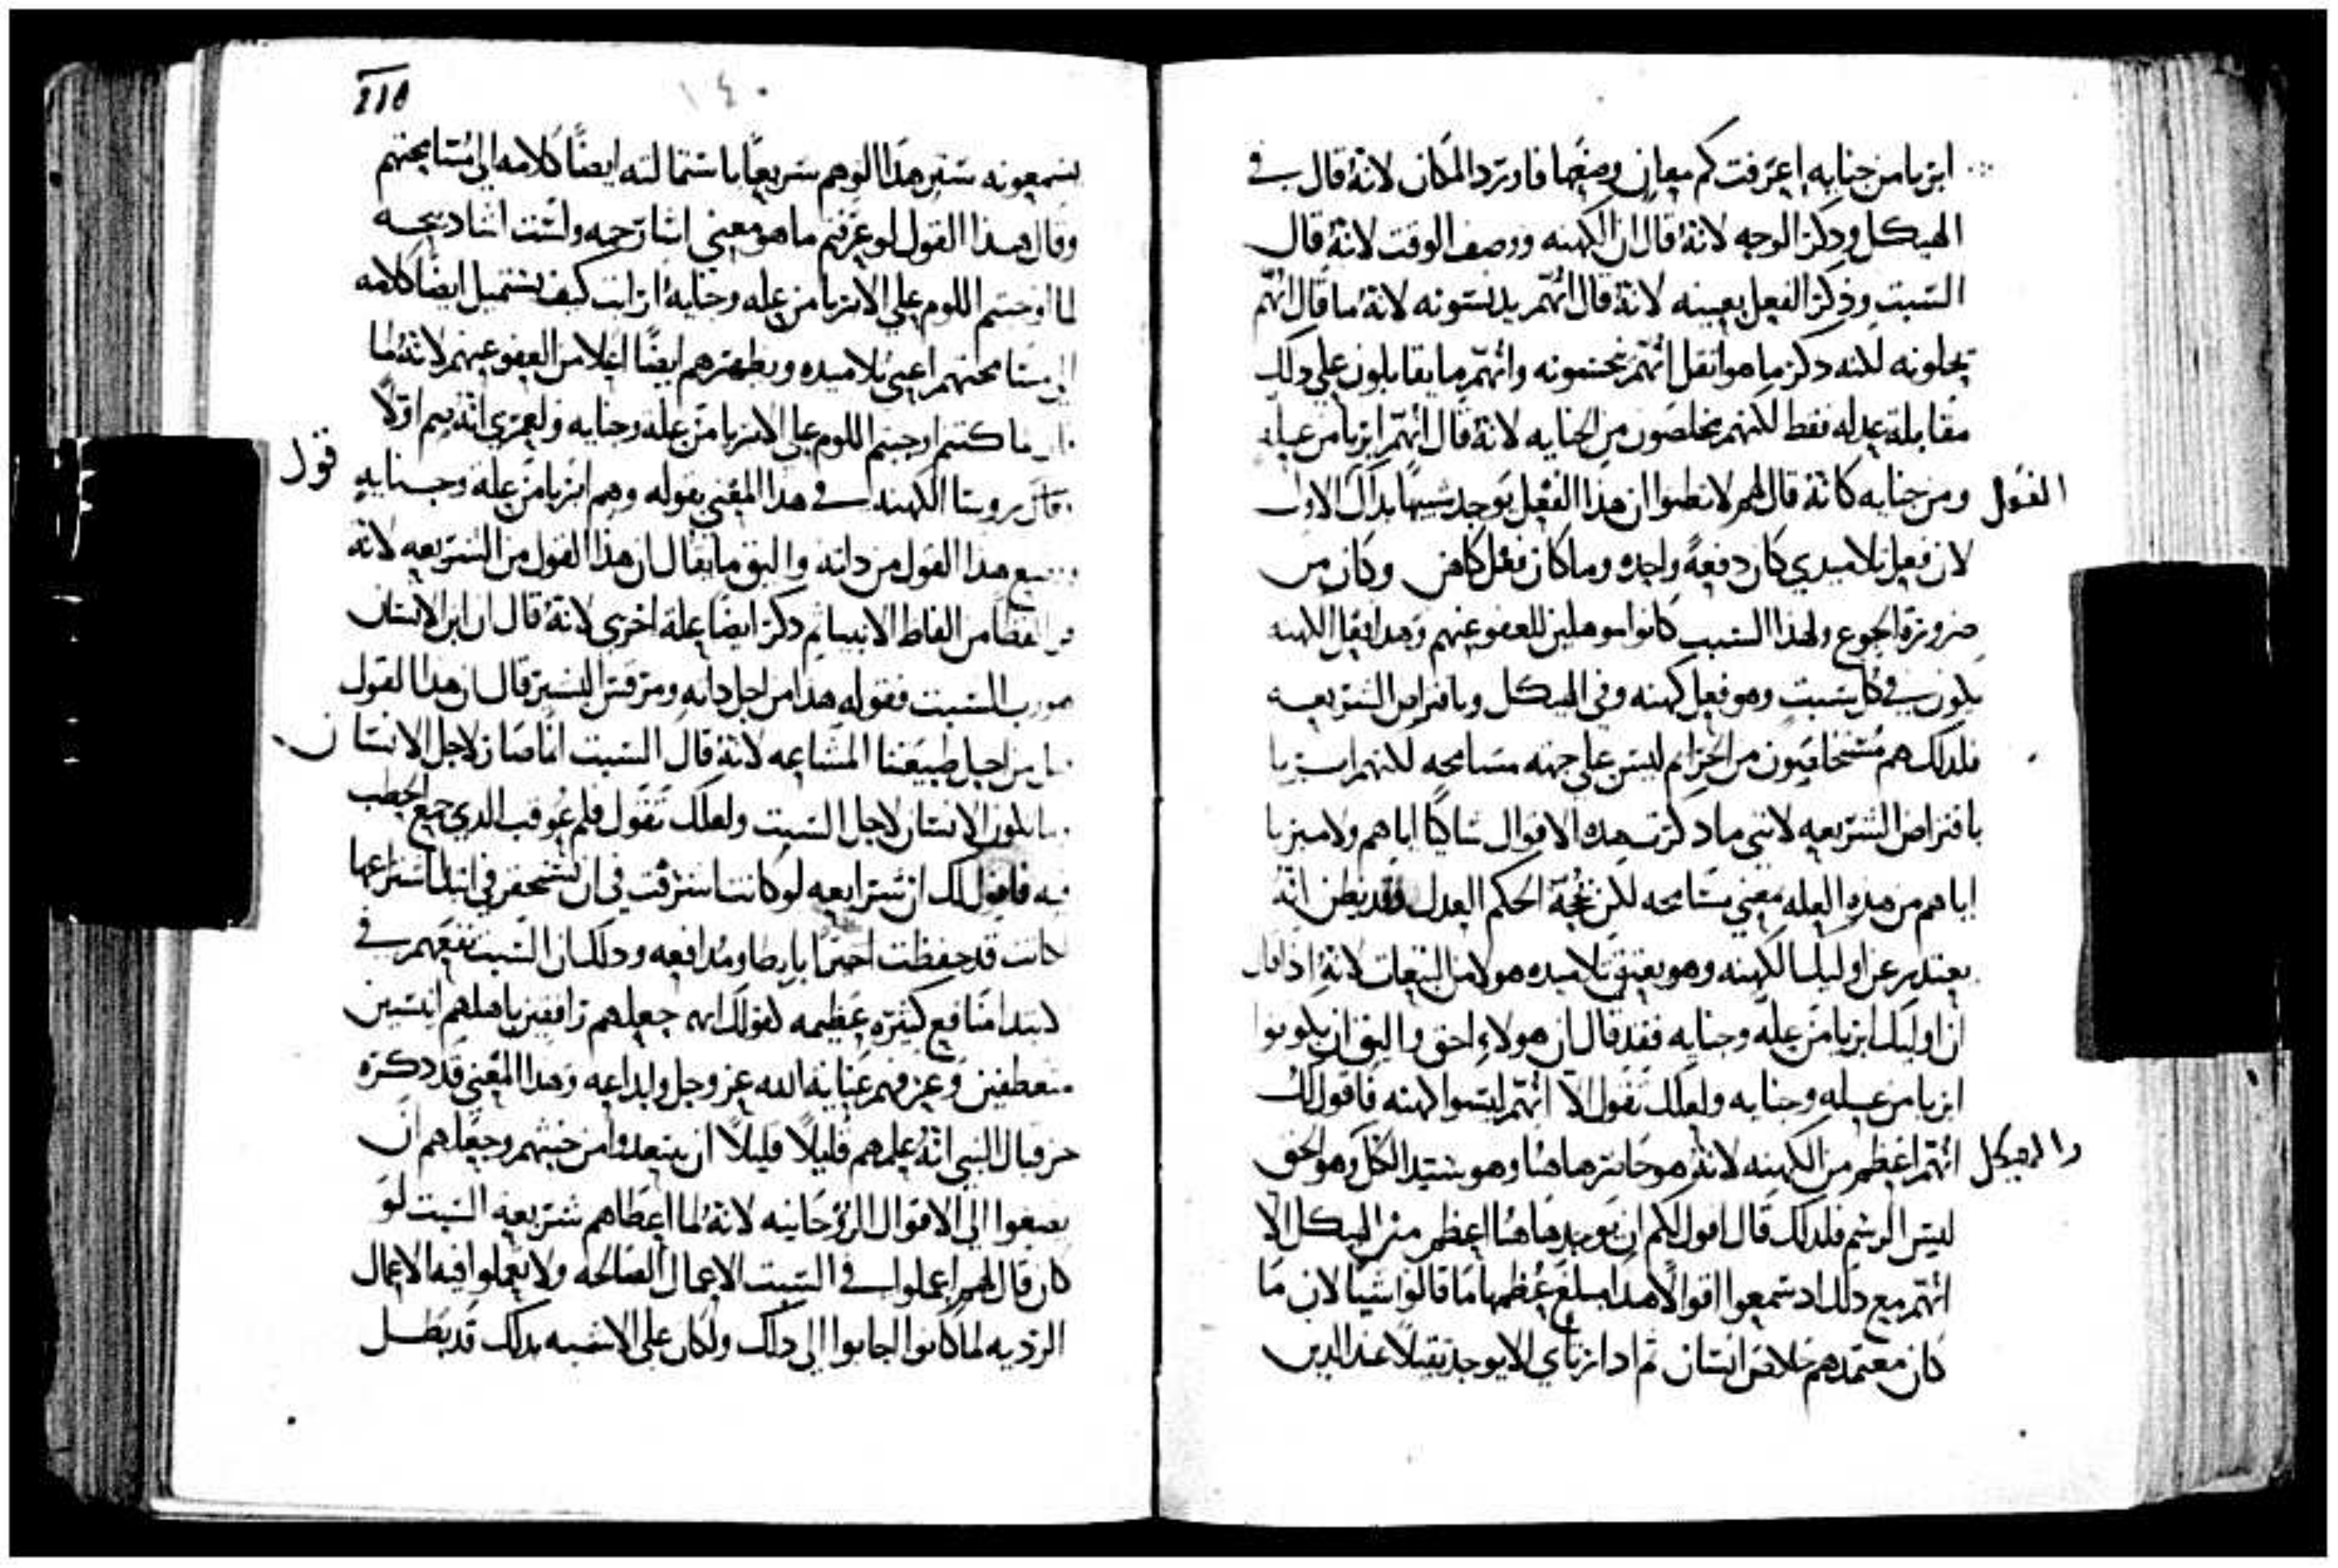 ابريا من جنايه اعرفت كم معاني وضعها فاورد المكان لانه قال في
الهيكل وذكر الوجه لانه قال ان الكهنه ووصف الوقت لانه قال
السبت وذكر الفعل بعينه لانه قال انهم يدنسونه لانه ما قال انهم
يحلونه لكنه دكر ما هو اثقل انهم وانهم ما يقابلون علي دلك
مقابلة عدله فقط لكنهم يخلصون من الجنايه لانه قال انهم ابريا من عله
القول
ومن جنايه كانه قال لهم لا تظنوا ان هذا الفعل يوجد شبيها بدلك الاول
لان فعل تلاميدي كان دفعةً واحده وما كان فعل كاهن وكان من
ضرورة الجوع ولهذا السبب كانوا موهلين للعفو عنهم وهدا فعل الكهنه
يكون في كل سبت وهو فعل كهنه وفي الهيكل وبافتراض الشريعه
فلدلك هم من الجرايم ليس علي جهة مسامحه لكنهم ابريا
بافتراض الشريعه لانني ما دكرت هده الاقوال شاكيًا اياهم ولا مبريا
اياهم من هذه العله معني مسامحه لكن بحجة الحكم العدل فقد يظن انه
يعتدر عن اوليك الكهنه وهو يعتق تلاميده هولا من التبعات لانه ادا قال
ان اوليك ابريا من عله وجنايه فقد قال ان هولاء احق واليق ان يكونوا
ابريا من عله وجنايه ولعلك تقول الا انهم ليسوا كهنه فاقول لك
والهيكل
انهم اعظم من الكهنه لانه هو حاضر هاهنا وهو سيد الكل وهو الحق
ليس الرسم فلدلك قال اقول لكم ان يوجد هاهنا اعظم من الهيكل الا
انهم مع دلك اد سمعوا اقوالا هدا مبلغ عظمها ما قالوا شيا لان ما
كان معتمدهم خلاص انسان ثم ادا الا يوجد ثقيلا عند الدين
١٤٠
يسمعونه ستر هدا الوهم سريعًا باستمالته ايضًا كلامه الي مسامحتهم
وقال هدا القول لو عرفتم ما هو معني اشا رحمه ولست اشا دبيحه
لما اوجبتم اللوم علي الابريا من عله وجنايه ارايت كيف يستميل ايضًا كلامه
الي مسامحتهم اعني تلاميده ويظهرهم ايضًا اعلا من العفو عنهم لانه لما
قال ما كنتم اوجبتم اللوم علي الابريا من عله وجنايه ولعمري انه رسم اولًا
قول
روسا الكهنه في هدا المعني بقوله وهم ابريا من عله وجنايه
هدا القول من داته واليق ما يقال ان هذا القول من الشريعه لانه
من الفاظ الانبيا ثم دكر ايضا علة اخري لانه قال ان ابن الانسان
هو رب السبت فقوله هدا من اجل داته ومرقس البشير قال ان هدا القول
من اجل طبيعتنا المشاعه لانه قال السبت انما صار لاجل الانسان
الانسان لاجل السبت ولعلك تقول فلم عوقب الدي جمع الحطب
فيه فاقول لك ان شرايعه لو كانت في ان في ابتدا اشتراعها
كانت قد حفظت ودلك ان السبت نفعهم في
الابتدا منافع كثيره عظيمه كقولك انه جعلهم رافقين باهلهم انيسين
متعطفين وعرفهم عناية الله عز وجل وابداعه وهدا المعني قد دكره
حزقيال النبي انه علمهم قليلًا قليلًا ان يبتعدوا من خبثهم وجعلهم ان
يصغوا الي الاقوال الروحانيه لانه لما اعطاهم شريعه السبت لو
كان قال لهم اعملوا في السبت الاعمال الصالحه ولا تعملوا فيه الاعمال
الرديه لما كانوا اجابوا الي دلك ولكان علي الاشبه بدلك قد بطل